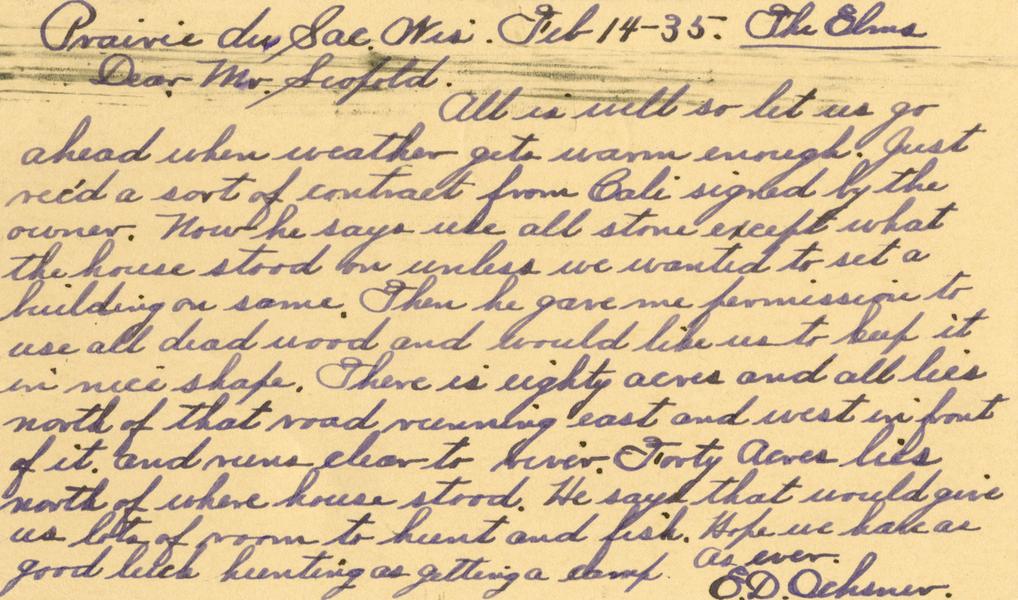 Prairie du Sac. Wis. Feb 14-35. The Elms
Dear Mr. Leopold.
All is well so let us go
ahead when weather gets warm enough. Just
rec'd a sort of contract from Cali signed by the
owner. Now he says use all stone except what
the house stood on unless we wanted to set a
building on same. Then he gave me permission to
use all dead wood and would like us to keep it
in nice shape. There is eighty acres and all lies
north of that road running east and west in front
of it. and runs clear to river. Forty Acres lies
north of where house stood. He says that would give
us lots of room to hunt and fish. Hope we have as
good luck hunting as getting a camp. As ever.
E.D. Ochsner.